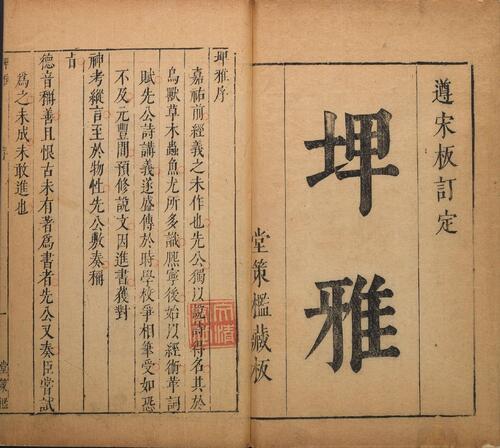 遵宋板訂定
埤雅
堂策檻藏板
埤雅序
嘉祐前經義之未作也先公獨以說詩得名其於
鳥獸草木蟲魚尤所多識熙寧後始以經術革詞
賦先公詩講義遂盛傳於時學校爭相筆受如恐
不及元豐間預修說文因進書獲對
神考縱言至於物性先公敷奏稱
旨
德音稱善且恨古未有著爲書者先公又奏臣嘗試
爲之未成未敢進也